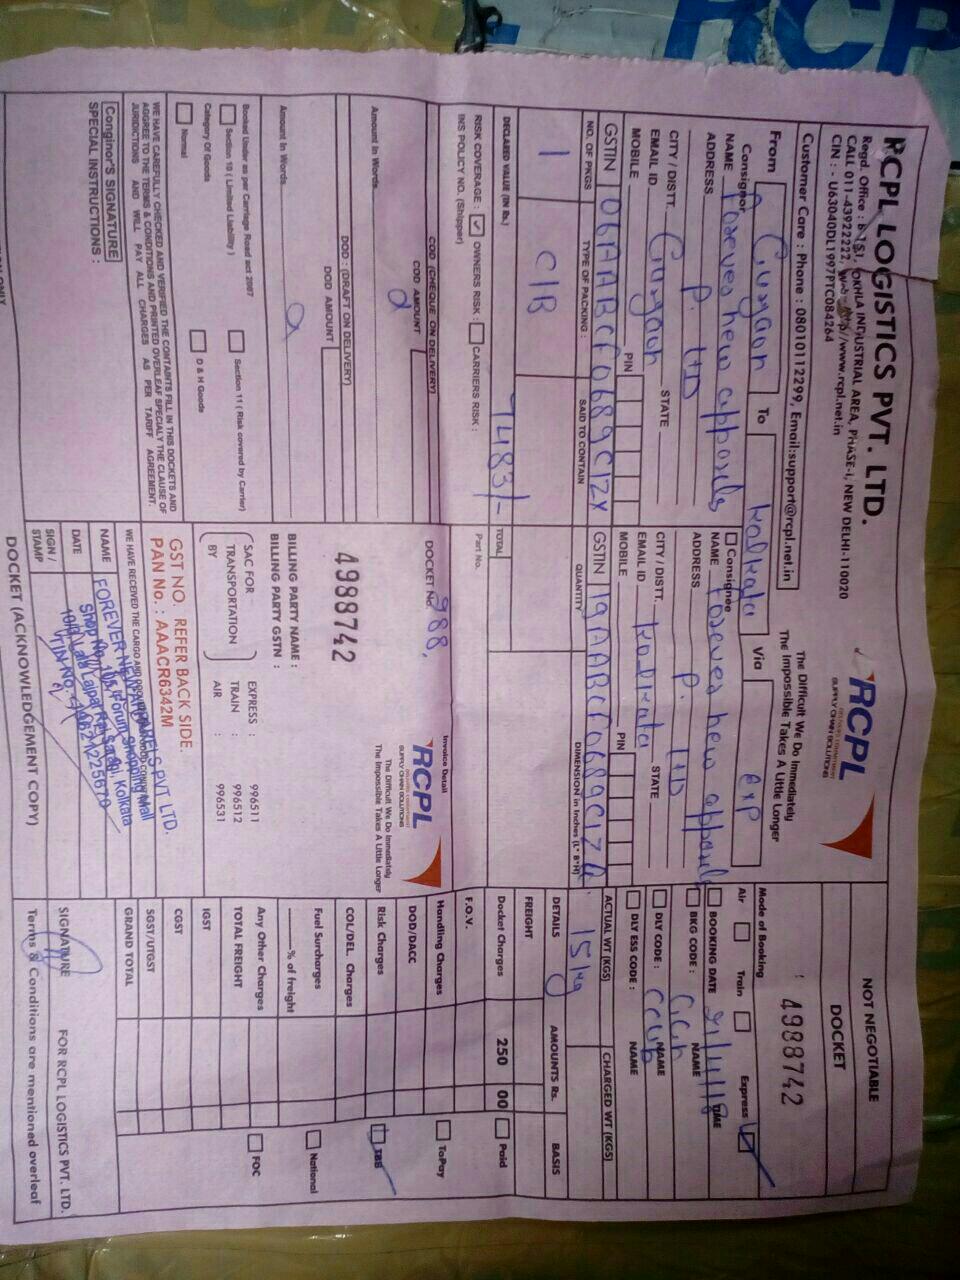 RCPL
RCPL LOGISTICS PVT. LTD.
Regd. Office : B-151, OKHLA INDUSTRIAL AREA, PHASE-I, NEW DELHI-110020
CALL 011-43922222, Web : http//www.rcpl.net.in
CIN : - U63040DL1997PTC084264
Customer Care : Phone : 08010112299, Email:support@rcpl.net.in
RCPL
SUPPLY CHAIN SOLUTIONS
The Difficult We Do Immediately
The Impossible Takes A Little Longer
NOT NEGOTIABLE
DOCKET
4988742
From Gurgaon To Kolkata Via EXP
Mode of Booking
Air Train Express
Consignor
NAME Forever new apparels
ADDRESS P. HD
CITY / DISTT. Gurgaon STATE
EMAIL ID
MOBILE PIN
GSTIN 06AAABCF0689C1ZX
Consignee
NAME Forever new apparels
ADDRESS P. HD
CITY / DISTT. Kolkata STATE
EMAIL ID
MOBILE PIN
GSTIN 19AABCF0689C1Z
BOOKING DATE TIME
BKG CODE : NAME
DLY CODE : CCUP NAME
DLY ESS CODE : NAME
NO. OF PKGS TYPE OF PACKING : SAID TO CONTAIN QUANTITY DIMENSION in Inches (L* B*H)
ACTUAL WT (KGS) CHARGED WT (KGS)
1 C/B
15 kg
TOTAL
DETAILS AMOUNTS Rs. BASIS
FREIGHT
Docket Charges 250 00 Paid
F.O.V.
Handling Charges ToPay
DOD/DACC
Risk Charges TBB
COL/DEL. Charges
Fuel Surcharges National
% of freight
Any Other Charges FOC
TOTAL FREIGHT
IGST
CGST
SGST/UTGST
GRAND TOTAL
DECLARED VALUE (IN Rs.) 97483/-
Part No.
RISK COVERAGE : OWNERS RISK : CARRIERS RISK :
INS POLICY NO. (Shipper)
COD (CHEQUE ON DELIVERY)
COD AMOUNT
Amount in Words
DOD : (DRAFT ON DELIVERY)
DOD AMOUNT
Amount in Words
Booked Under as per Carriage Road act 2007
Section 10 ( Limited Liability ) Section 11 ( Risk covered by Carrier)
Category Of Goods
Normal D & H Goods
WE HAVE CAREFULLY CHECKED AND VERIFIED THE CONTAINTS FILL IN THIS DOCKETS AND
AGGREE TO THE TERMS & CONDITIONS AND PRINTED OVERLEAF SPECIALY THE CLAUSE OF
JURISDICTIONS AND WILL PAY ALL CHARGES AS PER TARIFF AGREEMENT.
Conginor'S SIGNATURE
SPECIAL INSTRUCTIONS :
Invoice Detail
DOCKET No. 988,
4988742
RCPL
SUPPLY CHAIN SOLUTIONS
The Difficult We Do Immediately
The Impossible Takes A Little Longer
BILLING PARTY NAME :
BILLING PARTY GSTN :
SAC FOR TRANSPORTATION BY
EXPRESS : 996511
TRAIN : 996512
AIR : 996531
GST NO. REFER BACK SIDE.
PAN No. : AAACR6342M
WE HAVE RECEIVED THE CARGO AND
NAME
DATE
SIGN / STAMP
FOREVER NEW APPARELS PVT LTD.
Shop No. 105, Forum Shopping Mall
10/3, Lala Lajpat Rai Sarani, Kolkata
TIN NO.
DOCKET (ACKNOWLEDGEMENT COPY)
SIGNATURE FOR RCPL LOGISTICS PVT. LTD.
Terms & Conditions are mentioned overleaf